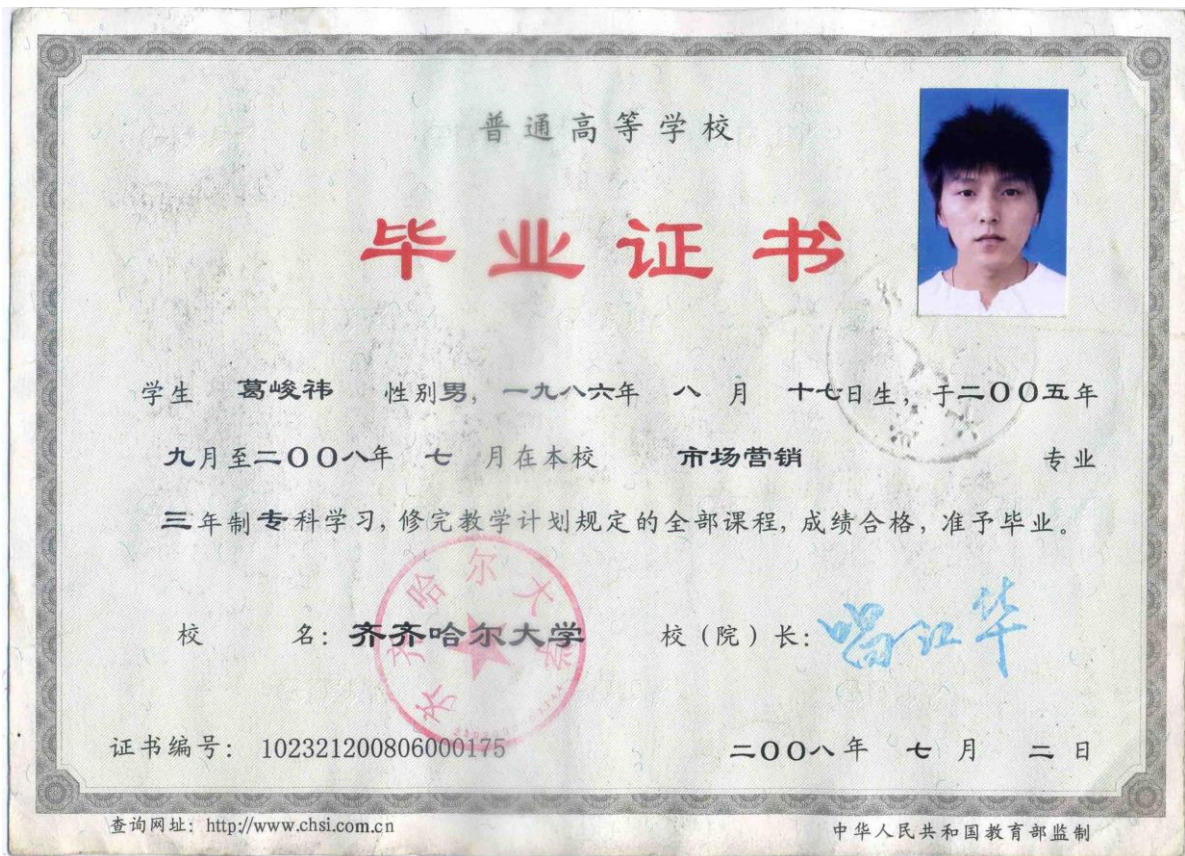 普通高等学校
毕业证书
学生 葛峻祎 性别男，一九八六年 八 月 十七日生，于二〇〇五年
九月至二〇〇八年 七 月在本校 市场营销 专业
三年制专科学习，修完教学计划规定的全部课程，成绩合格，准予毕业。
校 名：齐齐哈尔大学 校（院）长：唱江华
齐齐哈尔大学
证书编号： 102321200806000175 二〇〇八年 七 月 二 日
查询网址：http://www.chsi.com.cn 中华人民共和国教育部监制